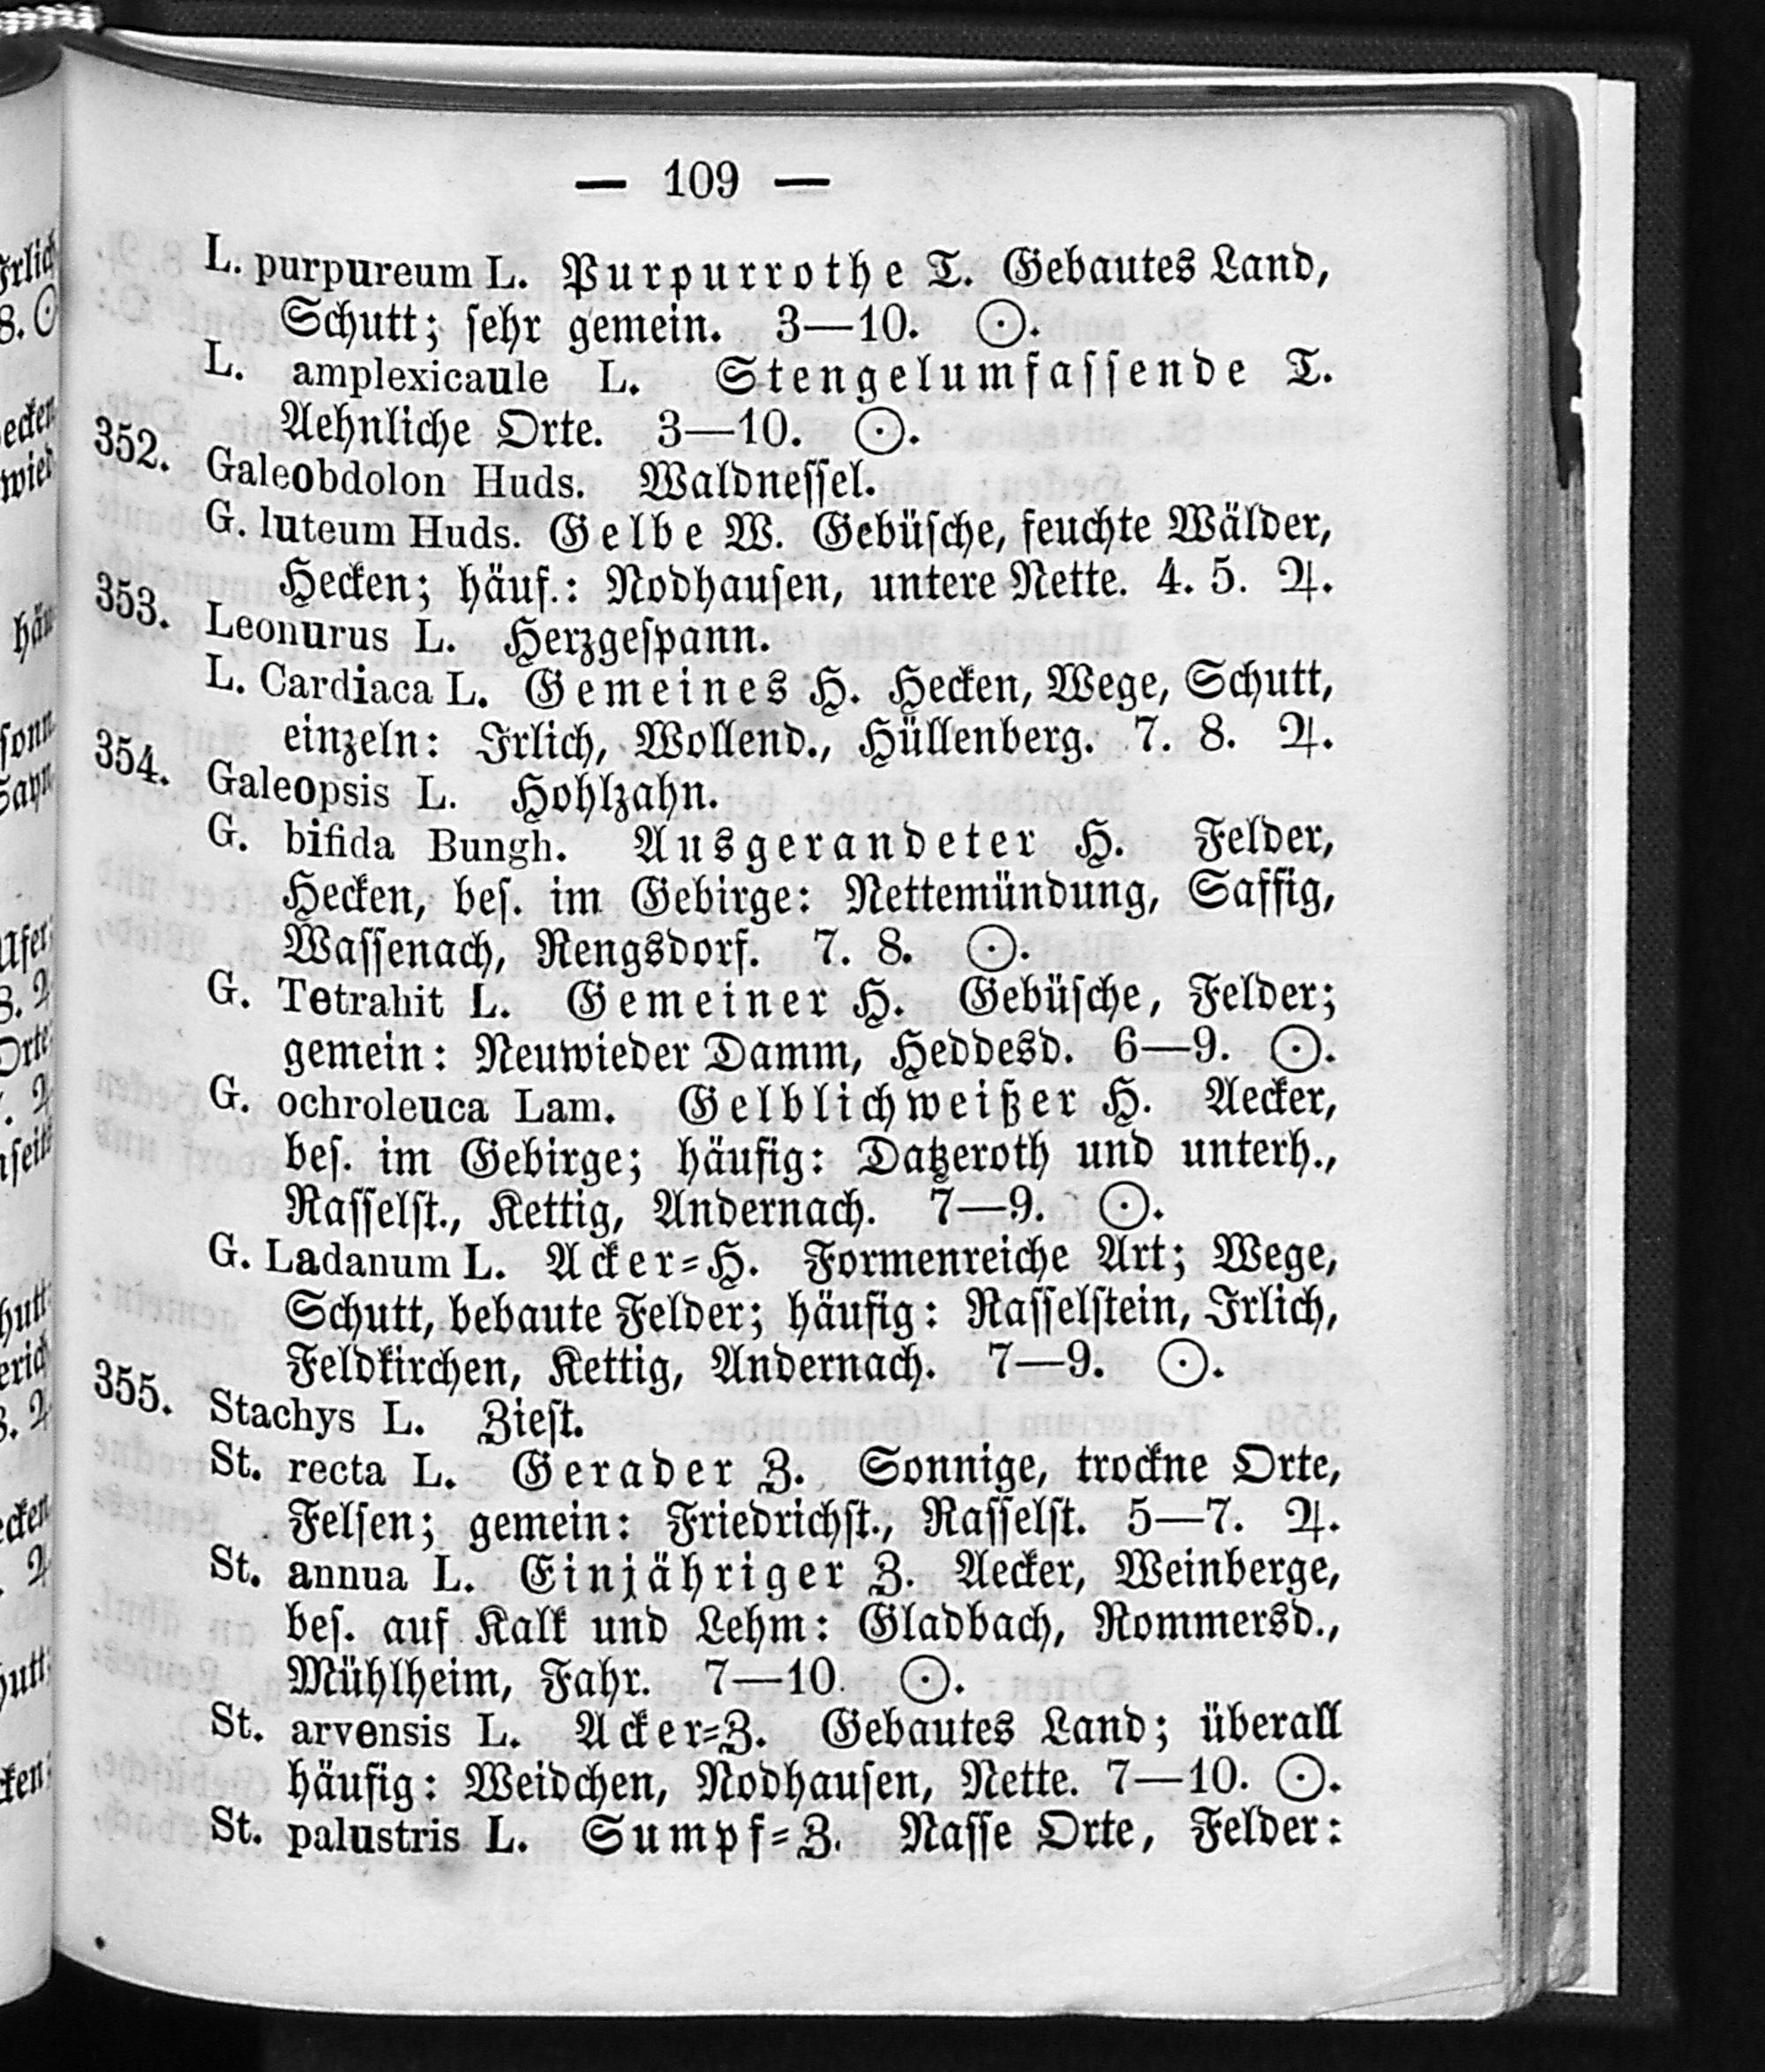 — 109 —
L. purpureum L. Purpurrothe T. Gebautes Land,
Schutt; sehr gemein. 3—10. ☉.
L. amplexicaule L. Stengelumfassende T.
Aehnliche Orte. 3—10. ☉.
352. Galeobdolon Huds. Waldnessel.
G. luteum Huds. Gelbe W. Gebüsche, feuchte Wälder,
Hecken; häuf.: Nodhausen, untere Nette. 4. 5. ♃.
353. Leonurus L. Herzgespann.
L. Cardiaca L. Gemeines H. Hecken, Wege, Schutt,
einzeln: Irlich, Wollend., Hüllenberg. 7. 8. ♃.
354. Galeopsis L. Hohlzahn.
G. bifida Bungh. Ausgerandeter H. Felder,
Hecken, bes. im Gebirge: Nettemündung, Saffig,
Wassenach, Rengsdorf. 7. 8. ☉.
G. Tetrahit L. Gemeiner H. Gebüsche, Felder;
gemein: Neuwieder Damm, Heddesd. 6—9. ☉.
G. ochroleuca Lam. Gelblichweißer H. Aecker,
bes. im Gebirge; häufig: Datzeroth und unterh.,
Rasselst., Kettig, Andernach. 7—9. ☉.
G. Ladanum L. Acker-H. Formenreiche Art; Wege,
Schutt, bebaute Felder; häufig: Rasselstein, Irlich,
Feldkirchen, Kettig, Andernach. 7—9. ☉.
355. Stachys L. Ziest.
St. recta L. Gerader Z. Sonnige, trockne Orte,
Felsen; gemein: Friedrichst., Rasselst. 5—7. ♃.
St. annua L. Einjähriger Z. Aecker, Weinberge,
bes. auf Kalk und Lehm: Gladbach, Rommersd.,
Mühlheim, Fahr. 7—10. ☉.
St. arvensis L. Acker-Z. Gebautes Land; überall
häufig: Weidchen, Nodhausen, Nette. 7—10. ☉.
St. palustris L. Sumpf-Z. Nasse Orte, Felder: